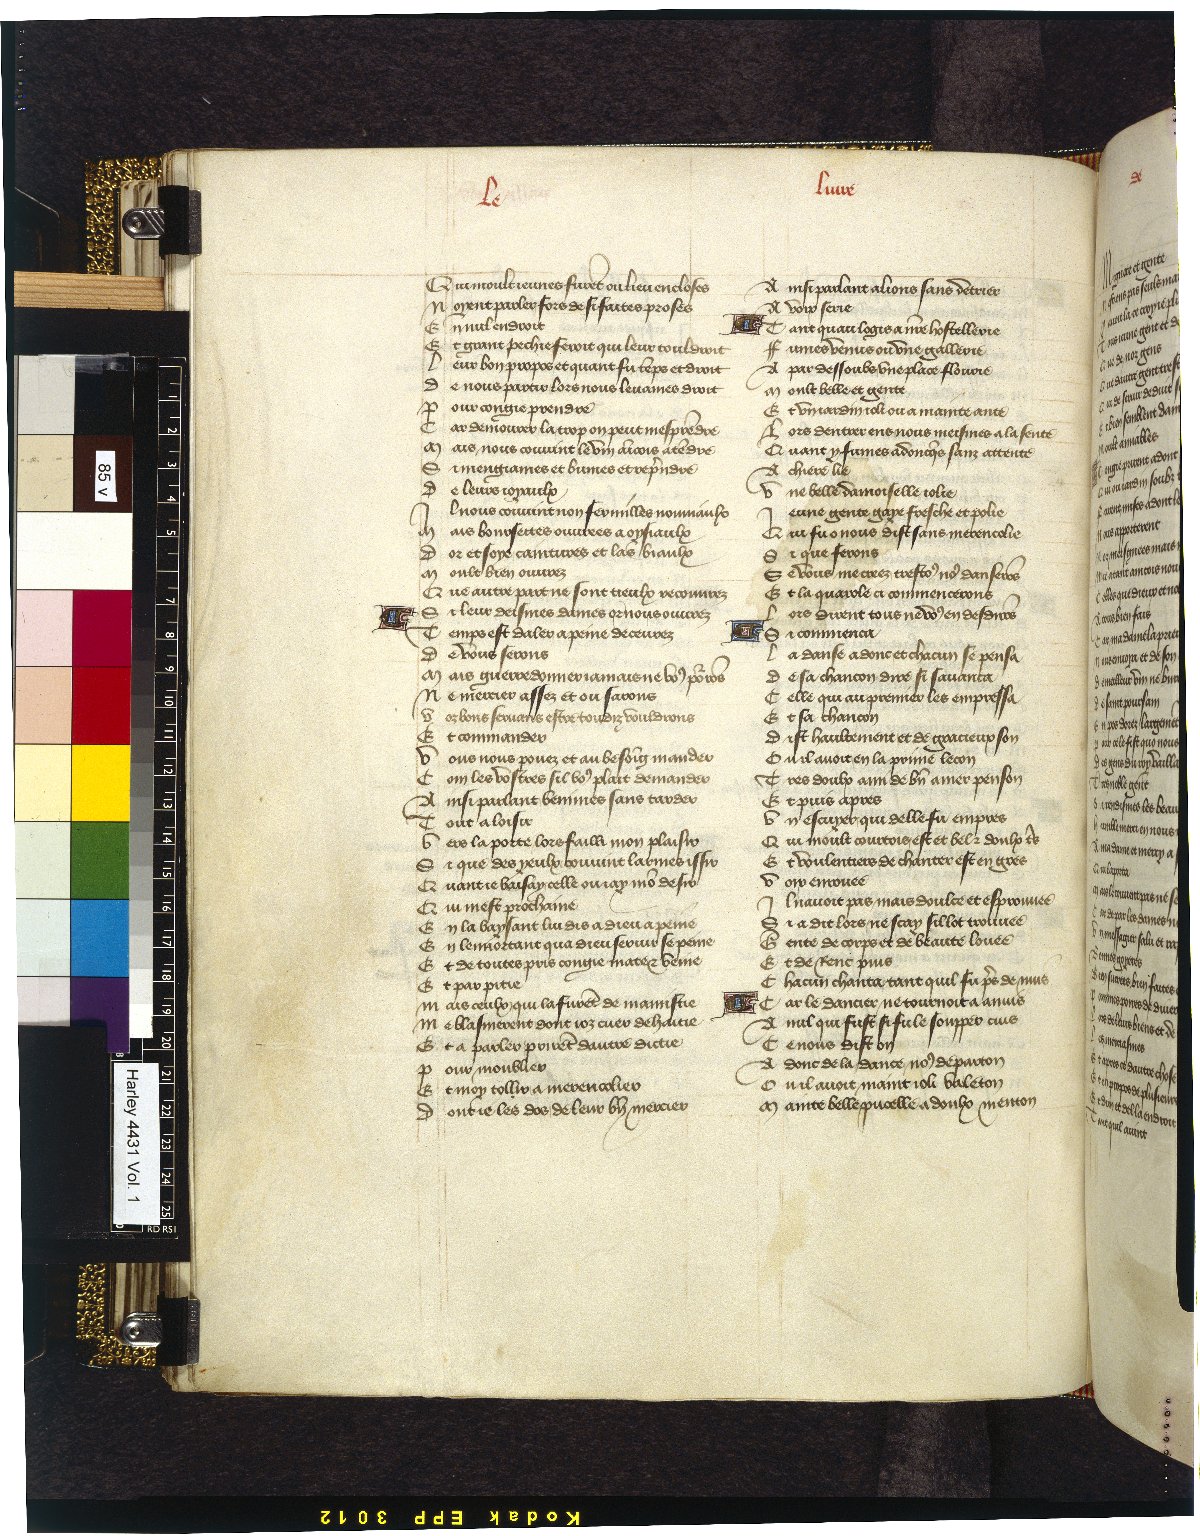 Le
Livre
Qui moult ieunes furēt ou lieu encloses
N oyent parler fors de si faites proses
E n nul endroit
E t grant pechie feroit qui leur touldroit
L eur bon propos et quant fu tēps et droit
D e nous partir lors nous levames droit
P our congie prendre
C ar demourer la trop on peut mesprēdre
M ais nous couvint le vin aīcois atēdre
S i mengiames et bumes et reprēndre
D e leurs ioyaulx
I l nous couvint non fermilles nouuiaulx
M ais boursetes ouvrees a oysiaulx
D or et soye caintures et las biaulx
M oult bien ouvrez
Q ue autre part ne sont tieulx recouvrez
S i leur deismes dames or nous ouvrez
T emps est daler a peine decevrez
D e vous serons
M ais guerredonner iamais ne vo⁹ pōrōs
N e mercier assez et ou sarons
V oz bons servans estre toudiz vouldrons
E t commander
V ous nous pouez et au besoīg mander
C om les vostres sil vo⁹ plaist demander
A insi parlant venimes sans tarder
T out a loisir
V ers la porte lors failli mon plaisir
S i que des yeulx couvint larmes issir
Q uant ie baisay celle ou iay mō desir
Q ui mest prochaine
E n la baysant lui dis a dieu a peine
E n lenmortant qua dieu servir se peine
E t de toutes pris congie mater vaine
E t par pitie
M ais ceulx qui la furēt de mainistie
M e blasmerent dont ioz cuer dehaitie
E t a parler prirēt dautre dictie
P our moublier
E t moy tollir a merencolier
D ont ie les dos de leur bn̄ mercier
A insi parlant alions sans detrier
A voix serie
T ant quau logis a nr̄e hostellerie
F umes venus ou vne gallerie
A par dessoubz vne place flourie
M oult belle et gente
E t vn iardin ioli ou a mainte ante
L ors dentrer ens nous meismes a la sente
Q uant y fumes adonq̄s sanz attente
A chiere lie
V ne belle damoiselle iolie
I eune gente gaye fresche et polie
Q ui fu o nous dist sans merencolie
S i que ferons
S e vous me creez trestō⁹ no⁹ danserōs
E t la quarole ci commencerons
L ors dirent tous ne vo⁹ en desdirōs
S i commenca
L a danse adonc et chacun se pensa
D e sa chancon dire si savanca
C elle qui au premier les empressa
E t sa chancon
D ist haultement et de gracieux son
O u il avoit en la prīme lecon
T res doulx ami de bn̄ amer penson
E t puis apres
V n escuyer qui delle fu empres
Q ui moult courtois est et bel z doulx t̄s
E t voulentiers de chanter est en gres
V oix enrouee
I l navoit pas mais doulce et esprouvee
S i a dit lors ne scay sil lot trouvee
G ente de corps et de beaute louee
E t de renc puis
C hacun chanta tant quil fu p̄s de nuis
C ar le dancier ne tournoit a anuis
A nul qui fust si fu le soupper cuis
C e nous dist on
A donc de la dance no⁹ departon
O u il avoit maint ioli valeton
M ainte belle pucelle a doulx menton
85 v
Harley 4431 Vol. 1
Kodak EPP 3012